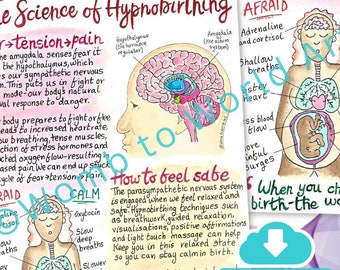 e Science of Hypnobirthing
r→tension→pain
he amygdala senses fear it
the hypothalunus, which
es our sympathetic nervous
m. This puts us in fight or
mode-our body's natural
val response to danger.
body prepares to fight or flee
leads to increased heart rate,
low breathing, tense muscles,
ction of stress hormones and
cted oxygen flow-resulting
sed pain. We can end up stuck
ycle of fear→tension→pain.
Hypothalamus
(the hormone
regulator)
Amygdala
(the alarm
system)
AFRAID
Adrenaline
and cortisol
Shallow
breaths
aster
heart
ess blood
flow
ore
ainful
surges
When you ch
birth-the wo
RAID
CALM
Oxytocin
Slow
deep
breaths
Slower
How to feel safe
The parasympathetic nervous system
is engaged when we feel relaxed and
safe. Hypnobirthing techniques such
as breathwork, guided relaxation,
visualisations, positive affirmations
and light touch massage can help
Keep you in this relaxed state
so you can stay calm in birth.
Womb to World